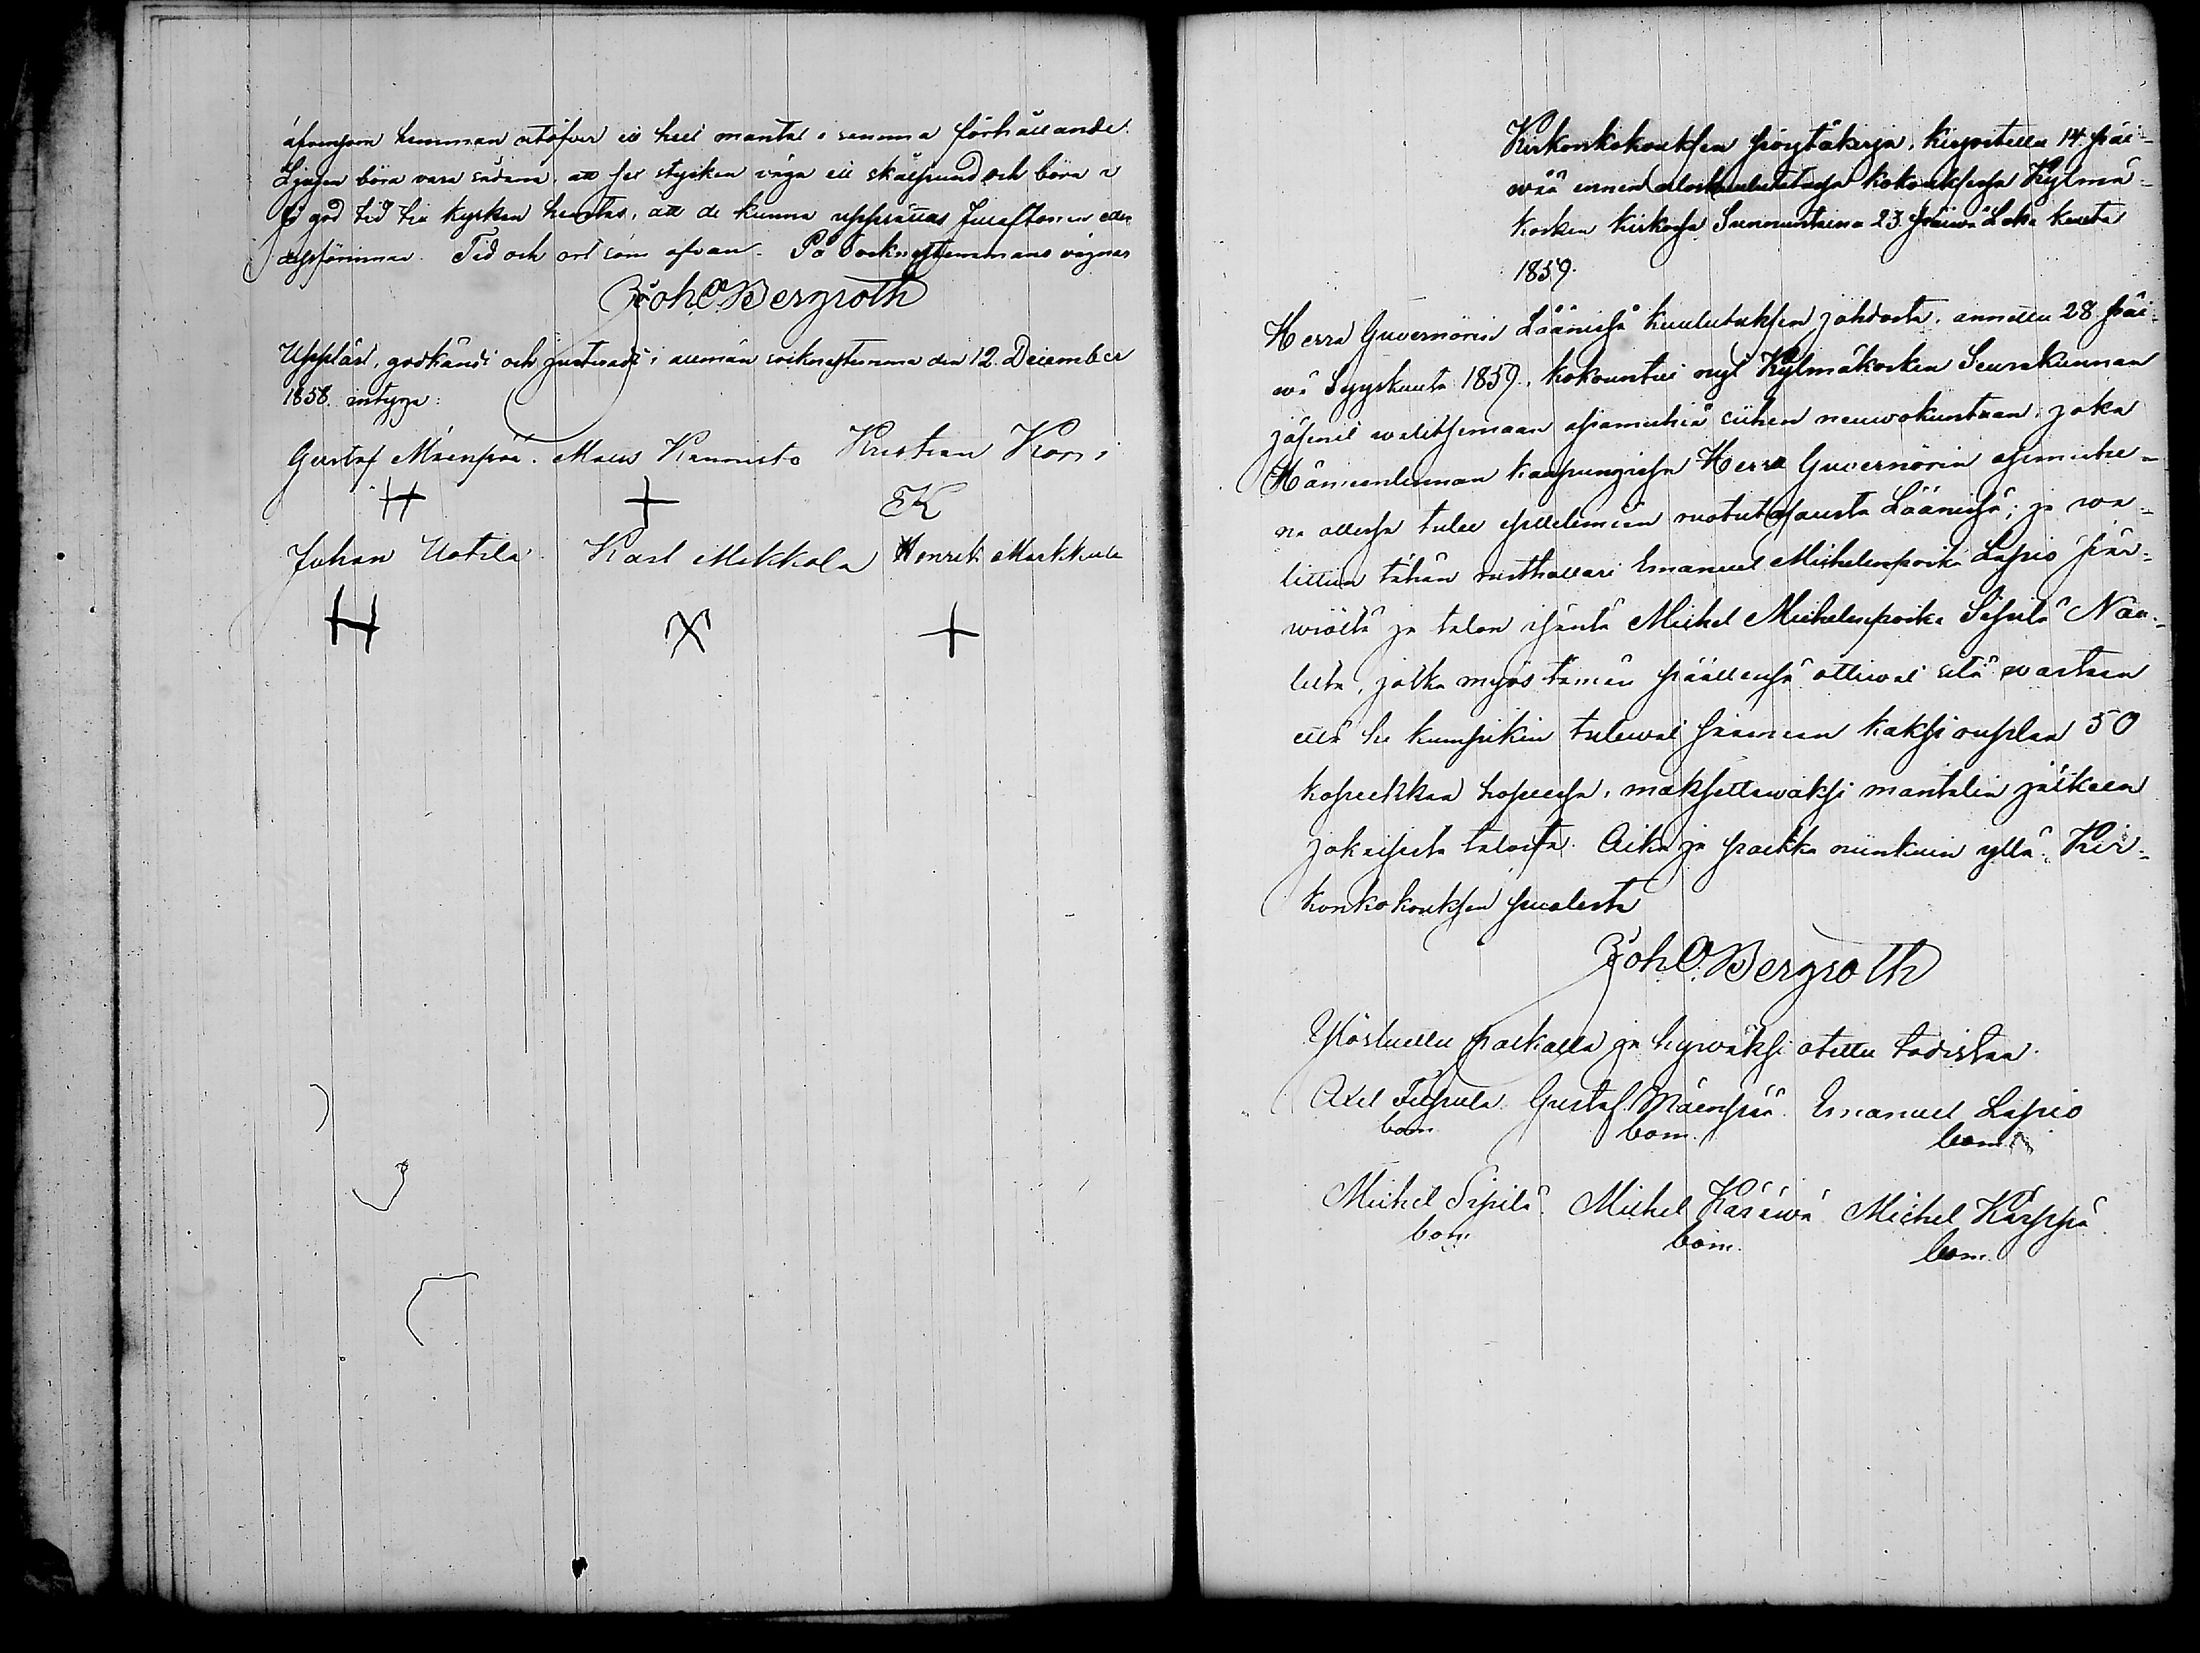 äfvensom hemman utöfver ett helt mantal i samma förhållande.
Ljusen böra vara sådana, att sex stycken väga ett skålpund och böra i
så god tid till kyrkan hemtas, att de kunna uppsättas Julaftonen eller
dessförinnan. Tid och ort som ofvan. På Sockenstämmans vägnar
Joh. O. Bergroth
Uppläst, godkändt och justeradt i allmän sockenstämma den 12 December
1858. intyga:
Gustaf Mäenpää. Matts Kannisto Kristian Kori
H + EK
Johan Uotila Karl Mikkola Henrik Markkula
H X +
Kirkonkokouksen pöytäkirja, kirjoitettu 14 päi-
wää ennen uloskuulutetussa kokouksessa Kylmä-
kosken kirkossa Sunnuntaina 23 päiwä Loka kuuta
1859.
Herra Guvernörin Läänissä kuulutuksen johdosta, annettu 28 päi-
wä Syyskuuta 1859, kokountui nyt Kylmäkosken Seurakunnan
jäsenet walitsemaan asiamiehiä siihen neuwokuntaan, joka
Hämeenlinnan kaupungissa Herra Guvernörin esimiehe-
nä ollessa tulee pidettämään ruotutasausta Läänissä; ja wa-
littiin tähän rusthollari Emanuel Michelinpoika Lapio Jär-
wiöltä ja talon isäntä Michel Michelinpoika Sipilä Naa-
lilta, jotka myös tämän päällensä ottiwat sitä wastaan
että he kumpikin tulewat saamaan kaksi ruplaa 50
kopeekkaa hopeessa, maksettawaksi mantalin jälkeen
jokaisesta talosta. Aika ja paikka niinkuin yllä. Kir-
konkokouksen puolesta
Joh. O. Bergroth
Ylösluettu paikalla ja hywäksi otettu todistaa.
Axel Gustaf Mäenpää. Emanuel Lapio
bom. bom. bom.
Michel Sipilä. Michel Michel Kärppä.
bom. bom. bom.